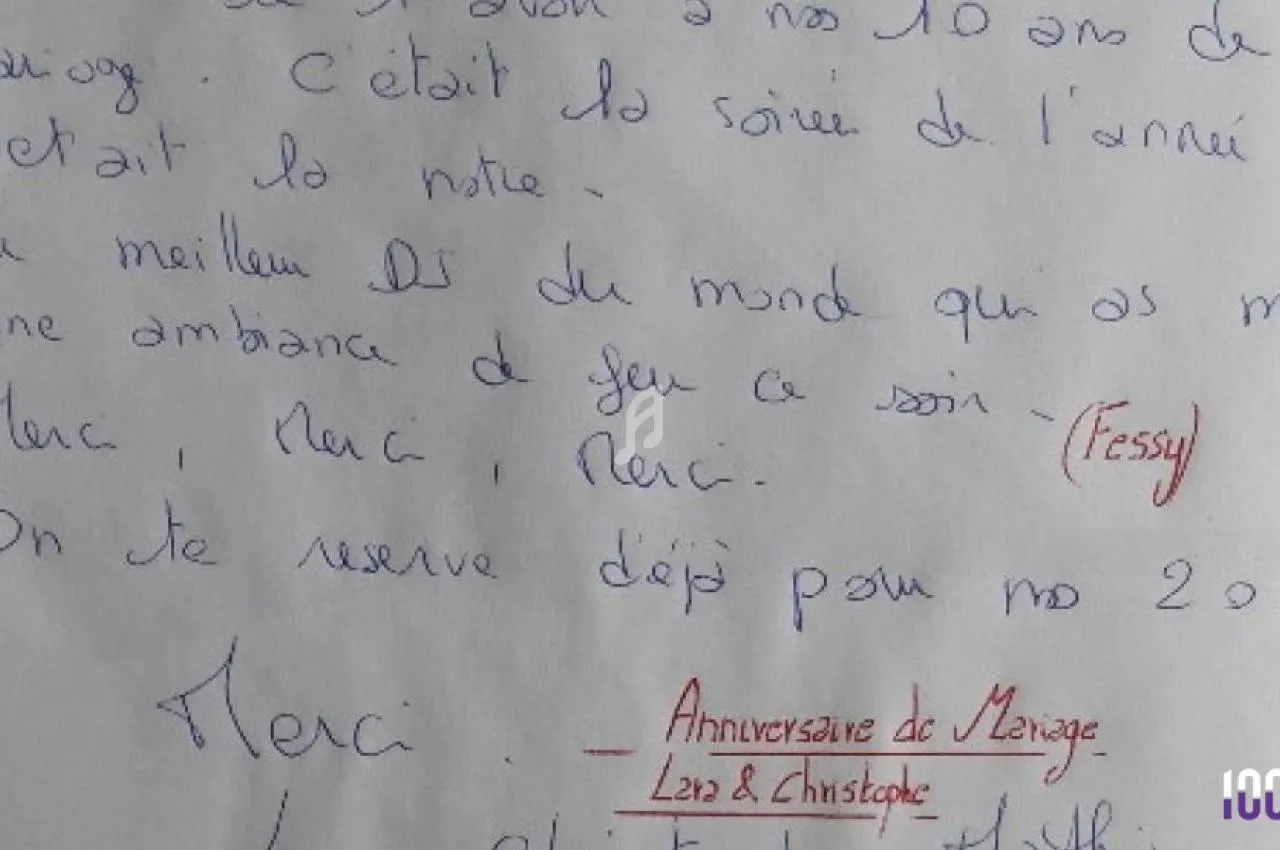 l'avoir à nos 10 ans de
ariage. C'était la soirée de l'année
etait la notre.
meilleur DJ du monde qui as m
ne ambiance de feu ce soir.
Merci, Merci, Merci. (Fessy)
On te reserve déjà pour nos 20
Merci. — Anniversaire de Mariage
Lara & Christophe
100